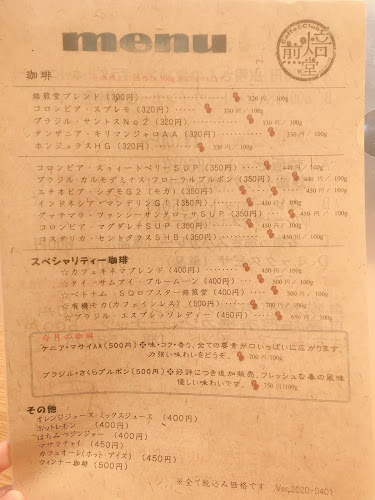 menu
Coffee Clover
焙煎堂
珈琲
焙煎堂ブレンド (300円) 320円/100g
コロンビア・スプレモ (320円) 330円/100g
ブラジル・サントスNo2 (320円) 330円/100g
タンザニア・キリマンジャロAA (320円) 330円/100g
ホンジュラスHG (320円) 330円/100g
コロンビア・スウィートベリーSUP (350円) 440円/100g
ブラジル・カルモデミナス・フローラルブルボン (350円) 450円/100g
エチオピア・シダモG2 (モカ) (350円) 450円/100g
インドネシア・マンデリンG1 (350円) 450円/100g
グァテマラ・ファンシーサンタロッサSUP (350円) 450円/100g
コロンビア・マグダレナSUP (350円) 450円/100g
コスタリカ・セントタラスSHB (350円) 450円/100g
スペシャリティー珈琲
☆カフェキネマブレンド (400円) 450円/100g
☆タイ・サムアイ・ブルームーン (400円) 500円/100g
☆ベトナム・SQロブスター焙煎堂 (400円) 500円/100g
☆有機モカ(カフェインレス) (500円) 700円/100g
☆ブラジル・エスプレッソレディー (400円) 650円/100g
今月の珈琲
ケニア・マサイAA(500円) ❖味・コク・香り、全ての要素が口いっぱいに広がります。
力強い味わいをどうぞ。 700円/100g
ブラジル・さくらブルボン(500円) ❖好評につき追加販売。フレッシュな春の風味
優しい味わいです。 750円/100g
その他
オレンジジュース・ミックスジュース (400円)
ホットレモン (400円)
はちみつジンジャー (400円)
マサラチャイ (450円)
カフェオーレ(ホット・アイス) (450円)
ウィンナー珈琲 (500円)
※全て税込み価格です Ver,2020-0401